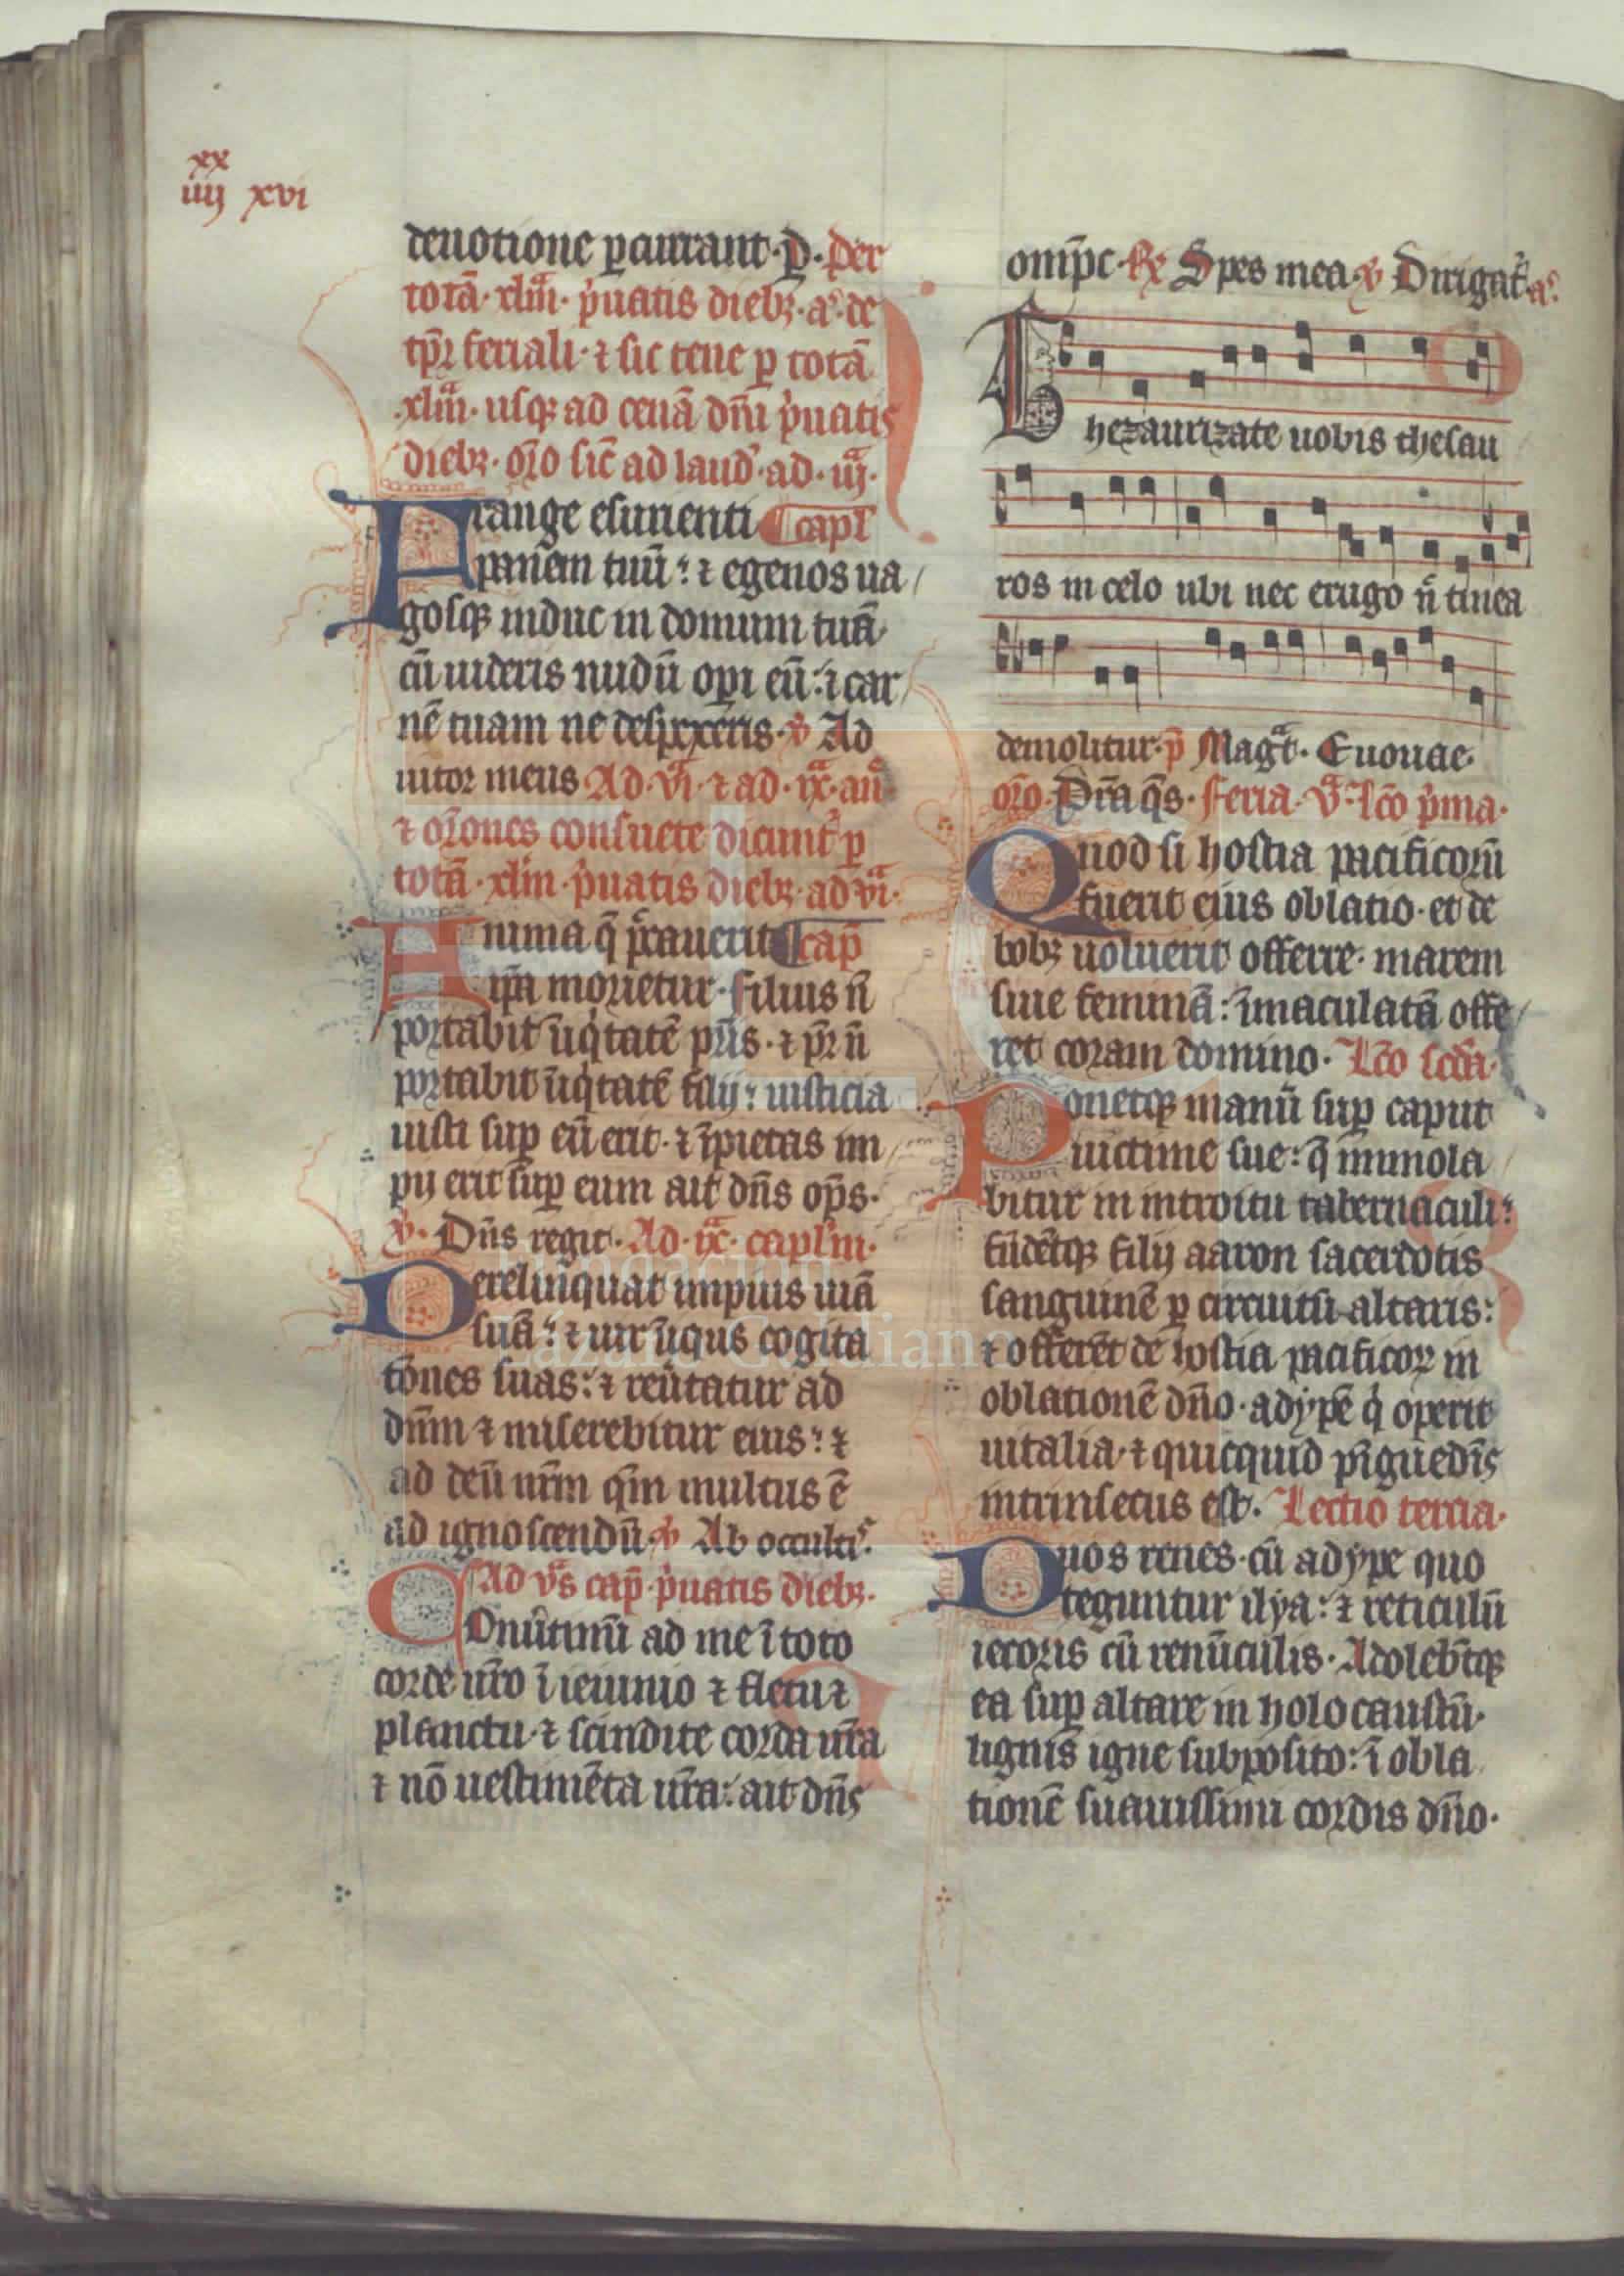 xx
iiij xvi
deuotione ꝑcurrant · ꝑ · Per
totā · xlmͣ · pͥuatis diebꝫ · aͤ · de
tꝑꝛ feriali · ⁊ sic tene ꝑ totā
xlmͣ · usqꝫ ad cenā dn̄i pͥuatis
diebꝫ · oꝛ̄o sic̄ ad laud̾ · ad · iijͣ ·
Frange esurienti capl̄
panem tuū : ⁊ egenos ua
gosqꝫ induc in domum tuā
cū uideris nudū oꝑi eū : ⁊ car
nē tuam ne despexeris · ꝟ Ad
iutoꝛ meus Ad · viͣ · ⁊ ad · ixͣ · an̄
⁊ oꝛ̄ones consuete dicunt̾ ꝑ
totā · xlmͣ · pͥuatis diebꝫ · ad viͣ ·
Anima q̄ pͨcauerit cap̄
ip̄a moꝛietur · filius n̄
poꝛtabit īiqͥtatē pr̄is · ⁊ pr̄ n̄
poꝛtabit īiqͥtatē filij : iusticia
iusti suꝑ eū erit · ⁊ īpietas im
pij erit suꝑ eum ait dn̄s op̄s ·
ꝟ · Dn̄s regit · Ad · ixͣ · capl̄m ·
Derelinquat impius uiā
suā : ⁊ uir īiqus cogita
tōnes suas : ⁊ reũtatur ad
dn̄m ⁊ miserebitur eius : ⁊
ad deū nr̄m qm̄ multus ē
ad ignoscendū · ꝟ Ab occultꝭ
Ad vs̾ cap̄ · pͥuatis diebꝫ ·
Conũtimī ad me ī toto
coꝛde ur̄o ī ieiunio ⁊ fletu ⁊
planctu · ⁊ scindite coꝛda ur̄a
⁊ nō uestimēta ur̄a : ait dn̄s
omp̄c · ℞ Spes mea ꝟ Dirigat̾ · aͤ
Thezaurizate uobis thesau
ros in celo ubi nec erugo n̄ tinea
demolitur · p̄ Magͣt · Euouae ·
oꝛ̄o · Pr̄a qs̄ · feria · vͣ · lc̄o pͥma ·
Quod si hostia pacificoꝛū
fuerit eius oblatio · et de
bobꝫ uoluerit offerre · marem
siue feminā : īmaculatā offe
ret coram domino · Lc̄o scd̄a ·
Ponetqꝫ manū suꝑ caput
uictime sue : q̄ immola
bitur in introitu tabernaculi :
fūdētqꝫ filij aaron sacerdotis
sanguinē ꝑ circuitū altaris :
⁊ offerēt de hostia pacificoꝝ in
oblationē dn̄o · adypē qͥ operit
uitalia · ⁊ quicquid pīguedīs
intrinsecus est · Lectio tercia ·
Duos renes · cū adype quo
teguntur ilya : ⁊ reticulū
iecoꝛis cū renūculis · Adolebn̄tqꝫ
ea suꝑ altare in holocaustū ·
lignis igne subposito : ī obla
tionē suauissimi coꝛdis dn̄o ·
Fundación
Lázaro Galdiano